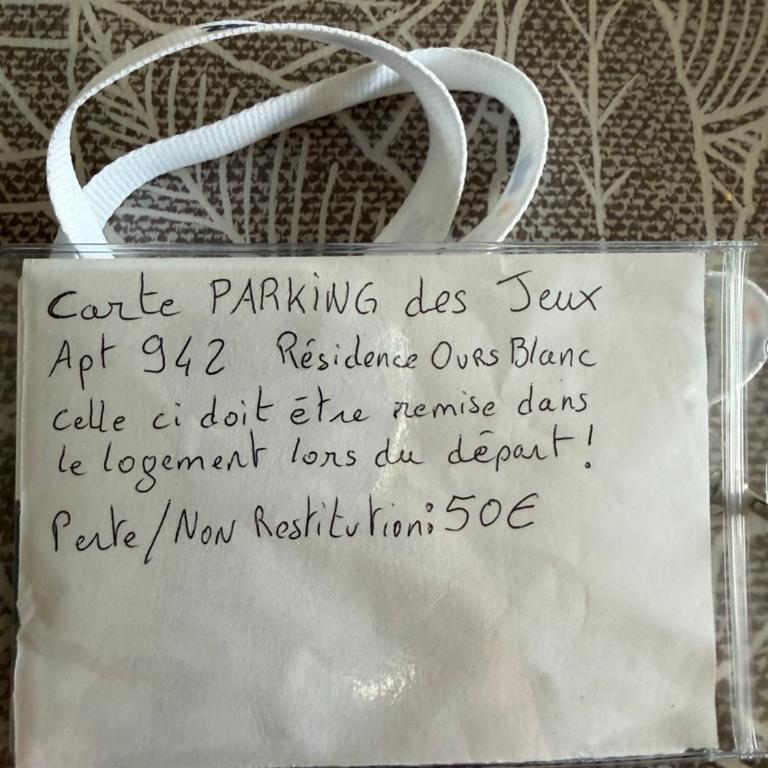 Carte PARKING des Jeux
Apt 942 Résidence Ours Blanc
celle ci doit être remise dans
le logement lors du départ!
Perte/Non Restitution: 50€